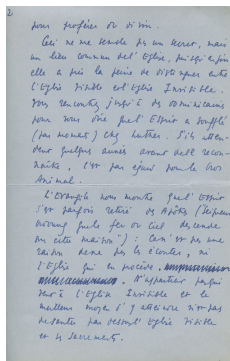 2
pour proférer du divin.
Ceci ne me semble pas un secret, mais
un lieu commun de l'Eglise, puisqu'enfin
elle a pris la peine de distinguer entre
l'Eglise Visible et l'Eglise Invisible.
Vous rencontrez jusqu'à des dominicains
pour vous dire que l'Esprit a soufflé
(par moments) chez Luther. S'ils atten-
dent quelques années avant de le recon-
naître, c'est par égard pour le Gros
Animal.
L'Evangile nous montre que l'Esprit
s'est parfois retiré des Apôtres (
que le feu du ciel descende
sur cette maison") : Ce n'est pas une
raison de ne pas les écouter, ni
l'Eglise qui en procède.
N'appartient
tout à l'Eglise Invisible et le
meilleur moyen d'y atteindre n'est pas
de
et ses Sacrements.